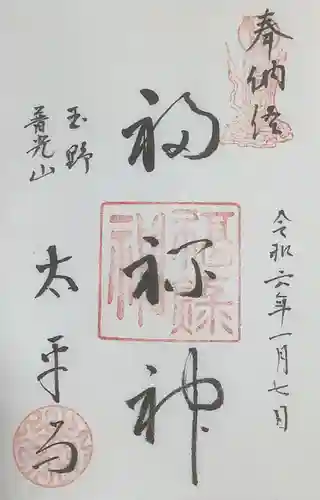 奉納経
令和六年一月七日
福祢神
玉野
普光山
太平寺